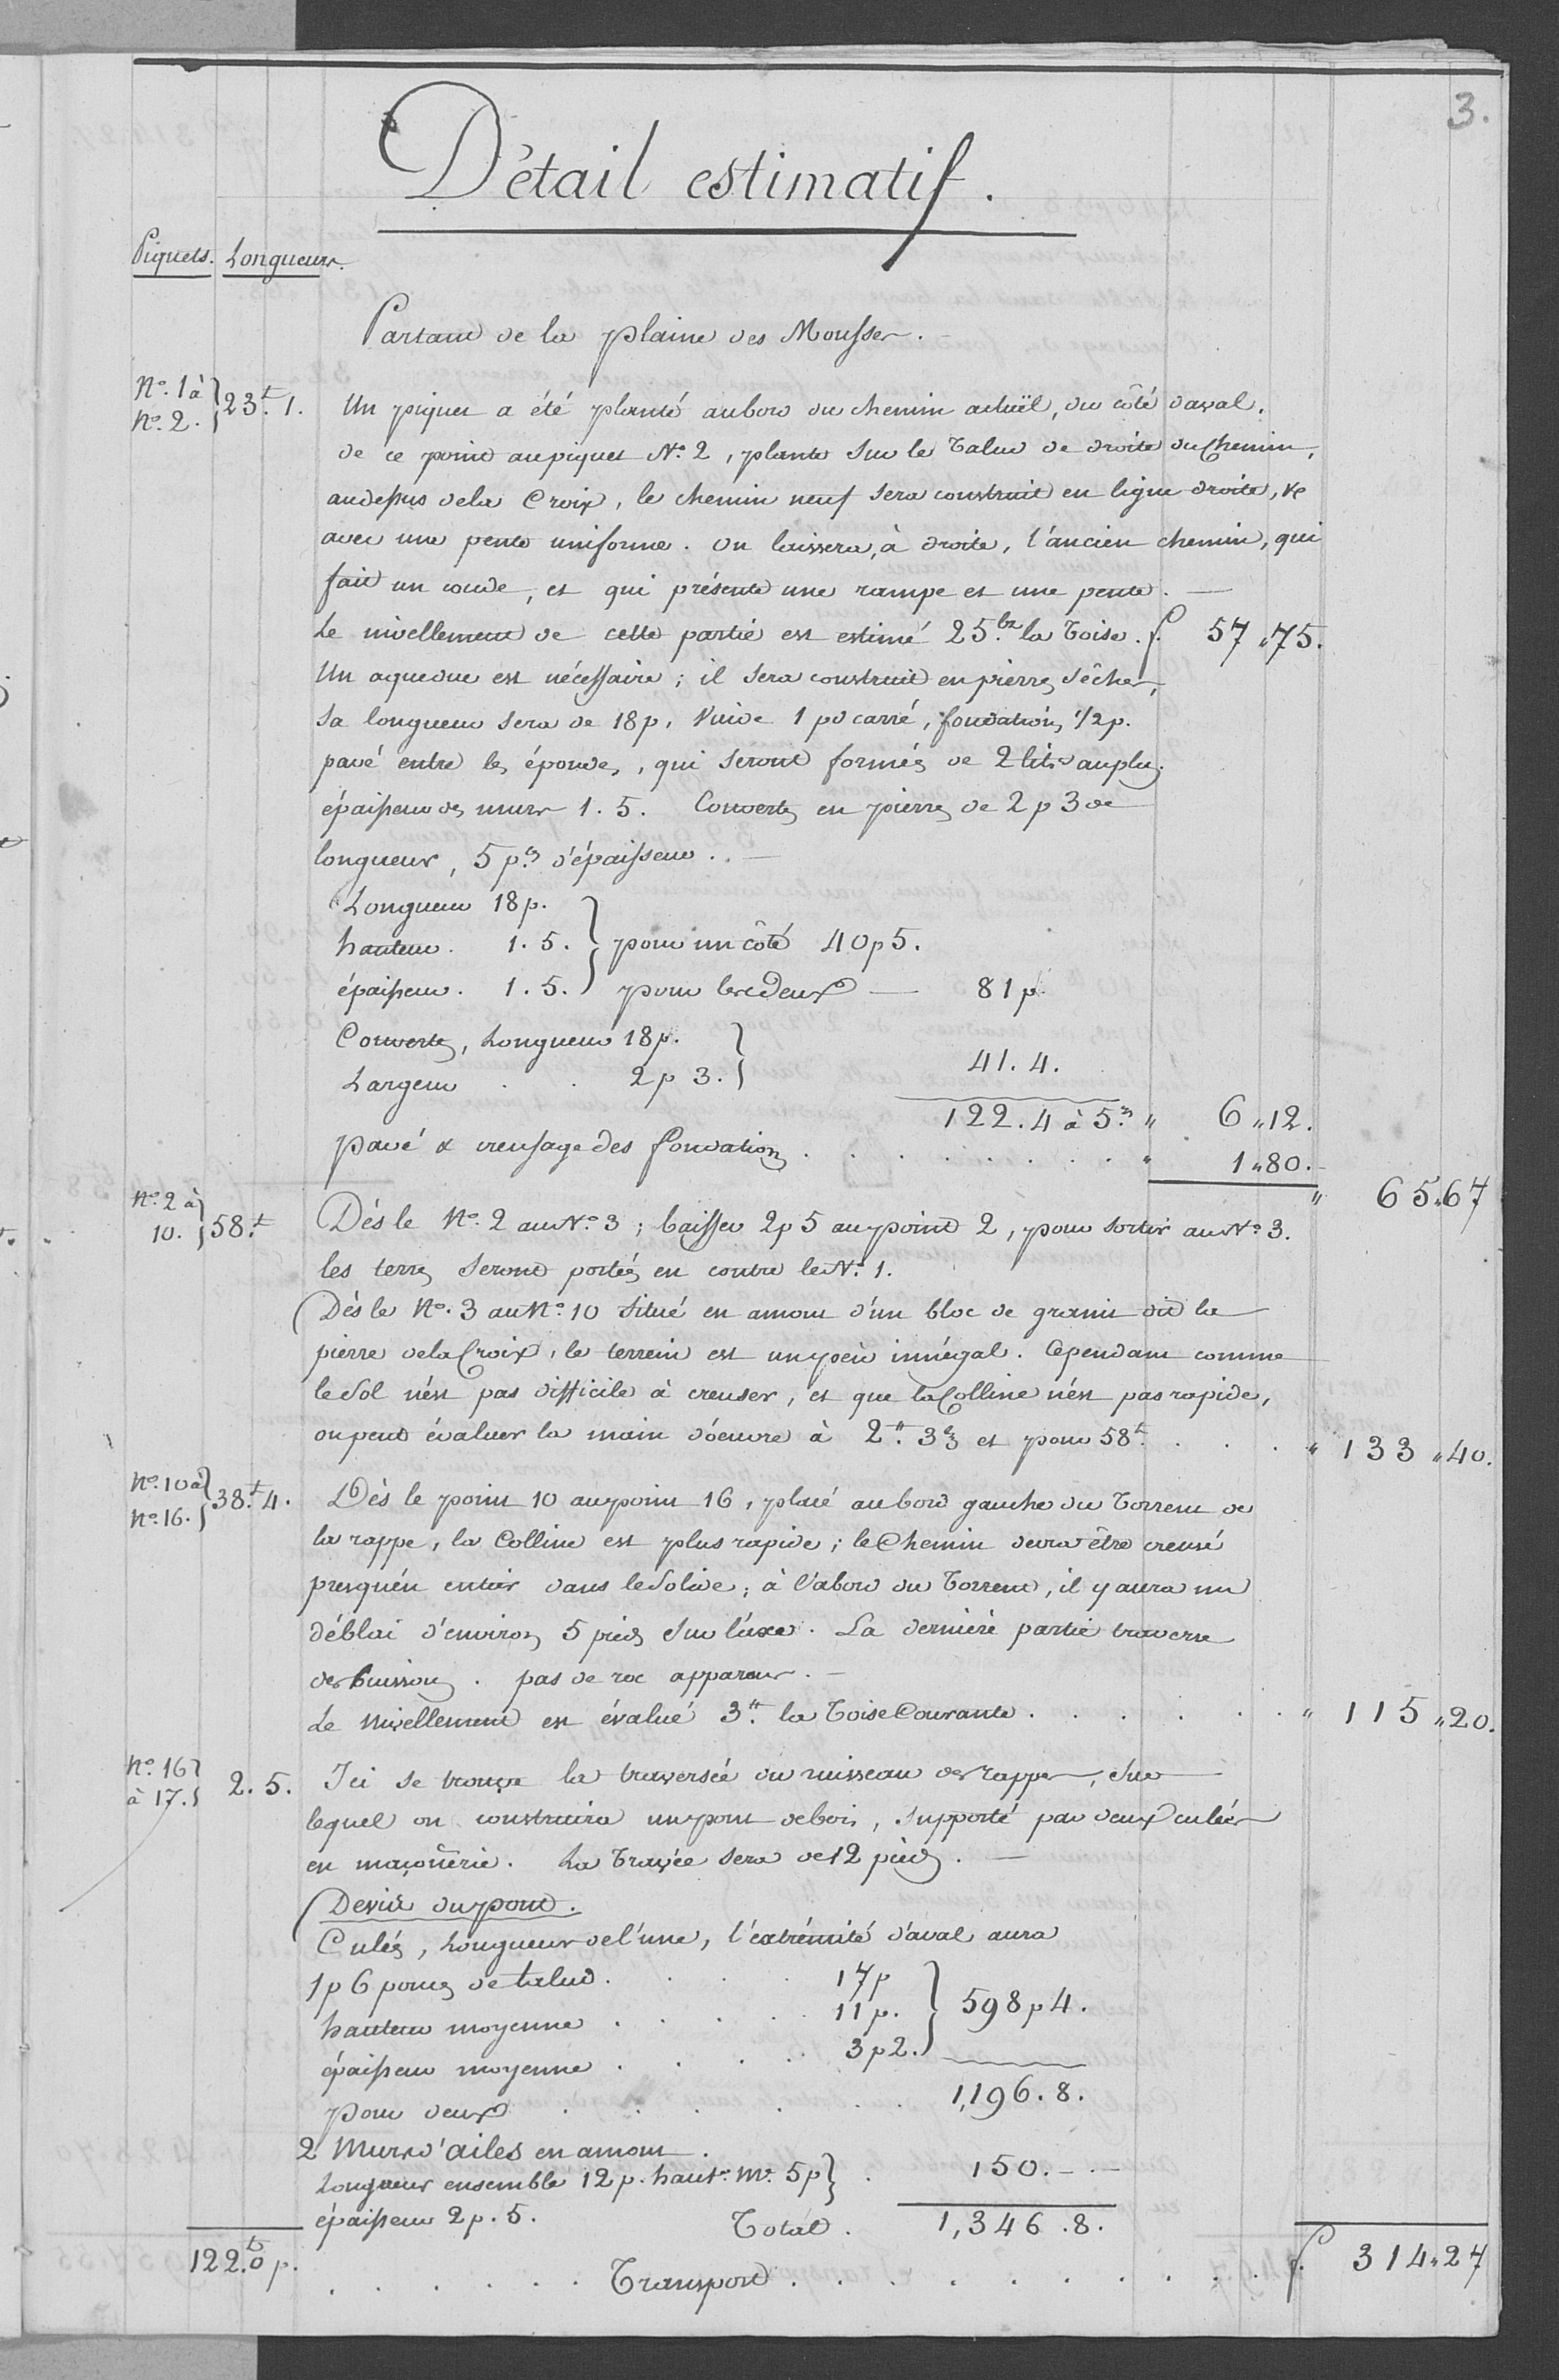 3.
Détail estimatif.
Piquets. Longueurs.
Partant de la plaine des Mousses.
N.o 1 à N.o 2. } 23.t 1. Un piquet a été planté au bord du chemin actuël, du côté d'aval.
de ce point au piquet N.o 2, planté sur le talud de droite du Chemin,
au dessus de la Croix, le chemin neuf sera construit en ligne droite, &
avec une pente uniforme. On laissera, à droite, l'ancien chemin, qui
fait un coude, et qui présente une rampe et une pente. —
Le nivellement de cette partie est estimé 25.bz la Toise. f. 57 „ 75.
Un aqueduc est nécessaire; il sera construit en pierres sêches,
sa longueur sera de 18 p, Vuide 1 pd carré, fondations 1/2 p.
pavé entre les épondes, qui seront formés de 2 lits au plus.
épaisseur des murs 1. 5. Couvertes en pierres de 2 p 3 de
longueur, 5 p.ces d'épaisseur. —
Longueur 18 p.
hauteur. 1. 5. } pour un côté 40 p 5.
épaisseur. 1. 5. pour les deux — 81 p.
Couvertes, Longueur 18 p. }
Largeur . . 2 p 3. } 41. 4.
122. 4 à 5.z „ 6 „ 12.
pavé & creusage des fondations . . . . . . . „ 1 „ 80.
„ 65 „ 67
N.o 2 à 10. } 58.t Dès le N.o 2 au N.o 3; baisser 2 p 5 au point 2, pour sortir au N.o 3.
les terres seront portés en contre le N.o 1.
Dès le N.o 3 au N.o 10 situé en amont d'un bloc de granit dit la
pierre de la Croix, le terrein est un peu innégal. Cependant comme
le sol n'est pas difficile à creuser, et que la Colline n'est pas rapide,
on peut évaluer la main d'oeuvre à 2.tt 3 z et pour 58.t . . . „ 133 „ 40.
N.o 10 à N.o 16. } 38.t 4. Dès le point 10 au point 16, placé au bord gauche du Torrent de
la rappe, la Colline est plus rapide; le Chemin devra être creusé
presqu'en entier dans le solide; à l'abord du Torrent, il y aura un
déblai d'environ 5 pieds sur l'axe. La dernière partie traverse
des buissons. pas de roc apparent. —
Le nivellement est évalué 3.tt la Toise Courante . . . . . . „ 115 „ 20.
N.o 16 à 17. } 2. 5. Ici se trouve la traversée du ruisseau des rappes, sur
lequel on construira un pont de bois, supporté par deux culées
en maçonnerie. La Travée sera de 12 pieds. —
Devis du pont.
Culés, Longueur de l'une, l'extrémité d'aval aura
1 p 6 pouces de talud. . . . 17 p
hauteur moyenne . . . . 11 p. } 598 p 4.
épaisseur moyenne . . . . 3 p 2.
pour deux . . . . . . . 1,196. 8.
2 Murs d'ailes en amont.
Longueur ensemble 12 p. haut.r m.e 5 p } . 150. —
épaisseur 2 p. 5. Total. 1,346. 8.
122.t 0 p. . . . . . Transport . . . . . . . . f. 314 „ 27